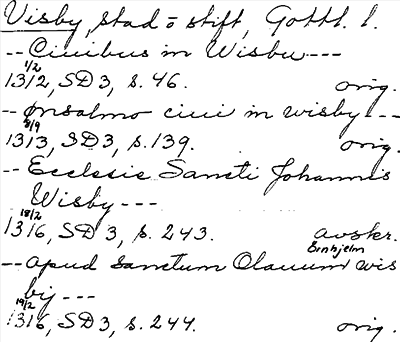 Visby, stad o stift, Gottl. l.
-- Ciuibus in Wisbu ---
1/2
1312, SD 3, s. 46. orig.
-- Ønsalmo ciui in wisby ---
8/9
1313, SD3, s. 139. orig.
-- Ecclesie Sancti Johannis
Wisby ---
18/2
1316, SD 3, s. 243. avskr.
Örnhjelm
-- apud sanctum Olauum wis
bij ---
19/2
1316, SD3, s. 244. orig.